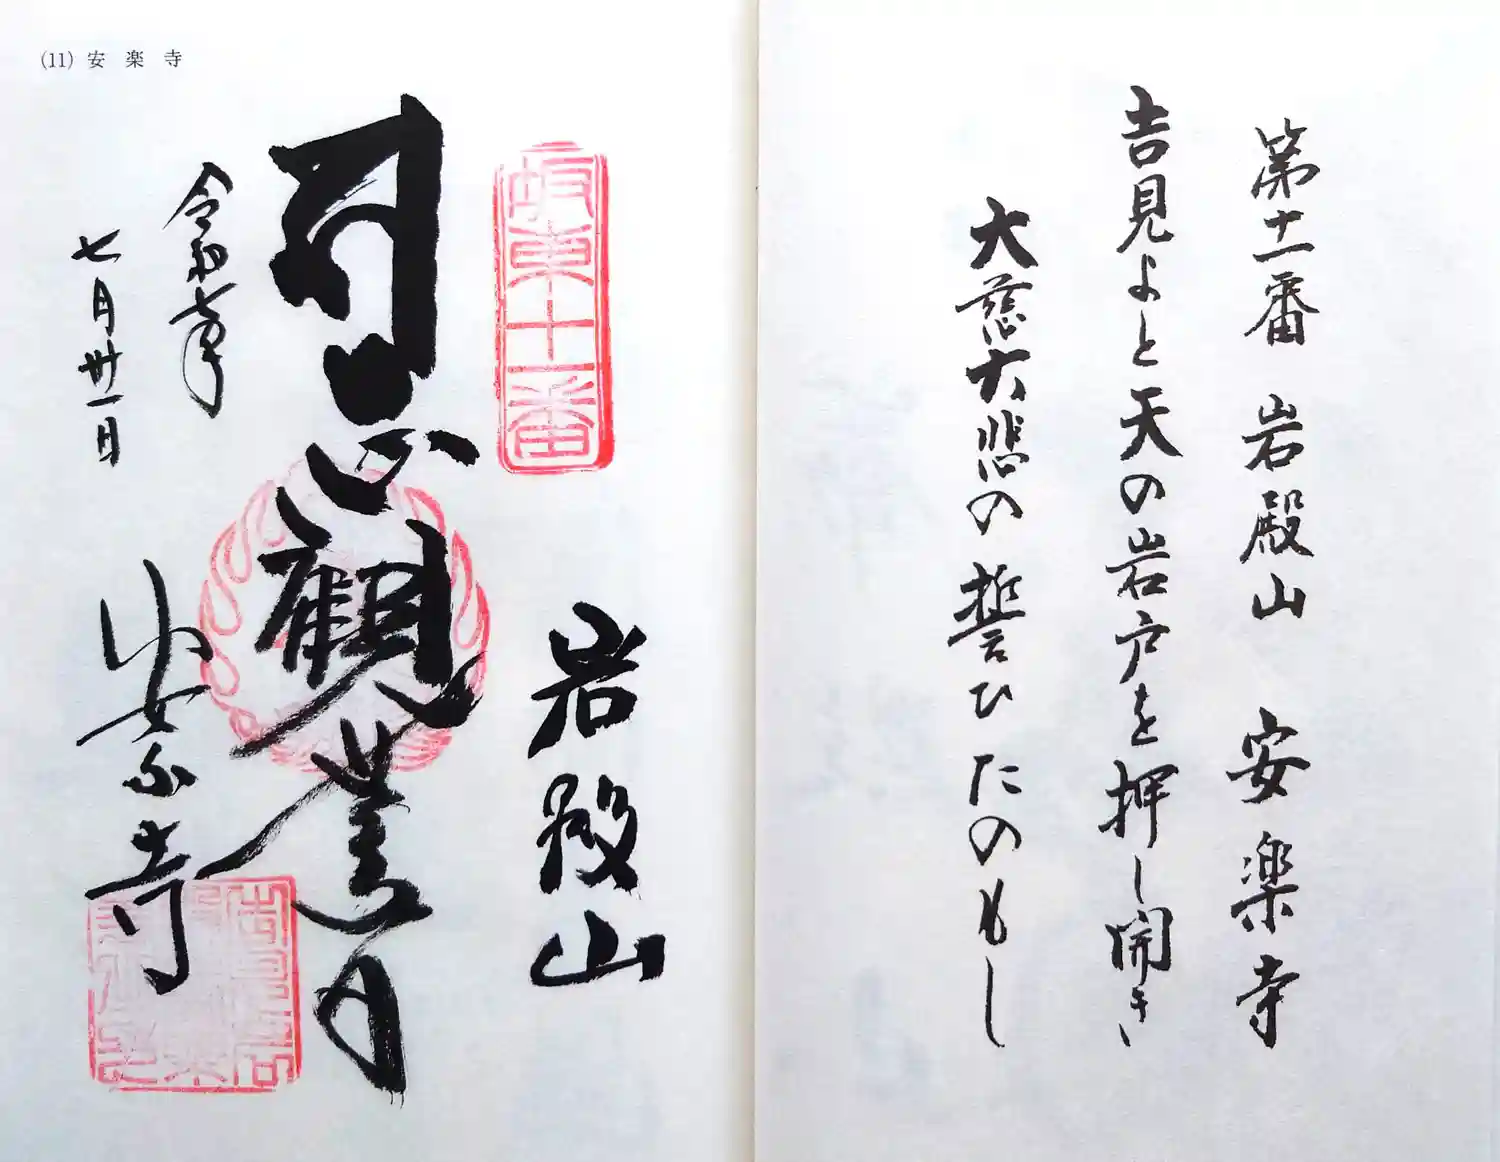 第十一番 岩殿山 安楽寺
吉見よと天の岩戸を押し開き
大慈大悲の誓ひたのもし
(11) 安楽寺
坂東十一番
岩殿山
観世音
令和七年
七月卅一日
安楽寺